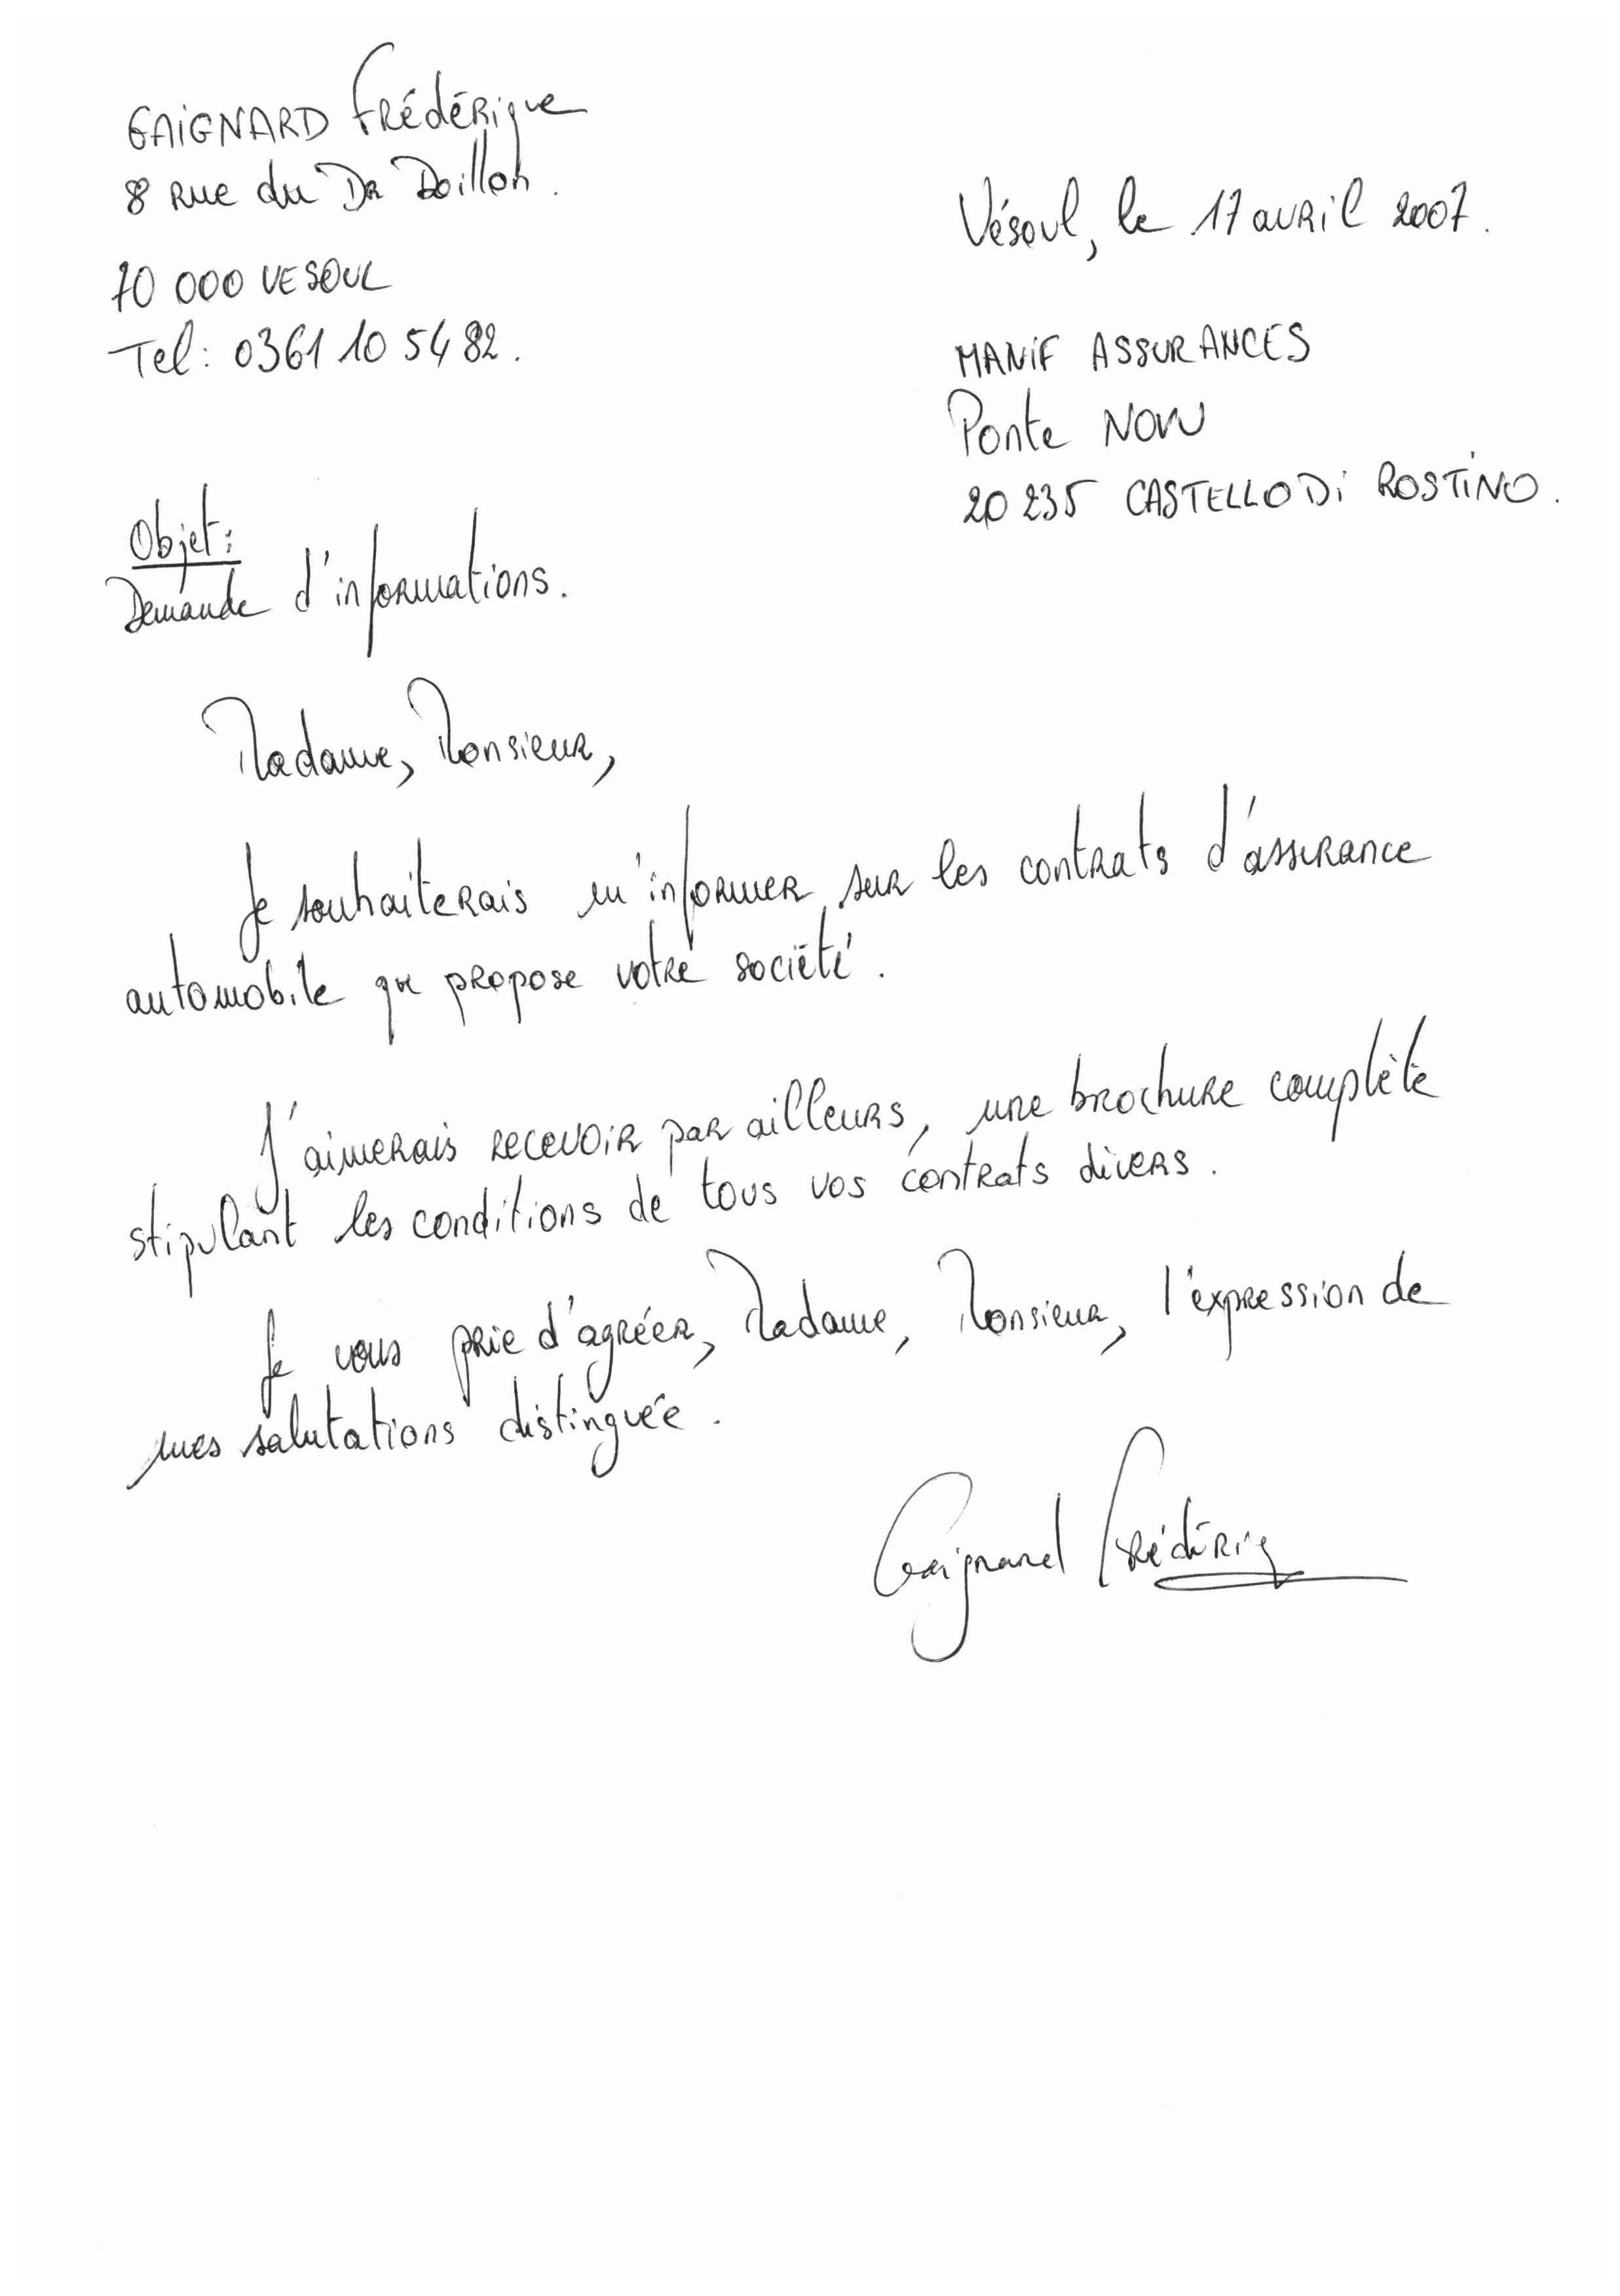 GAIGNARD Frédérique
8 rue du Dr Doillon.
70 000 VESOUL
Tel : 0361 10 54 82.
Vésoul, le 17 avril 2007.
MANIF ASSURANCES
Ponte NOVU
20 235 CASTELLO Di ROSTINO.
Objet :
Demande d'informations.
Madame, Monsieur,
Je souhaiterais m'informer sur les contrats d'assurance
automobile que propose votre société.
J'aimerais recevoir par ailleurs, une brochure complète
stipulant les conditions de tous vos contrats divers.
Je vous prie d'agréer, Madame, Monsieur, l'expression de
mes salutations distinguée.
Gaignard Frédériq